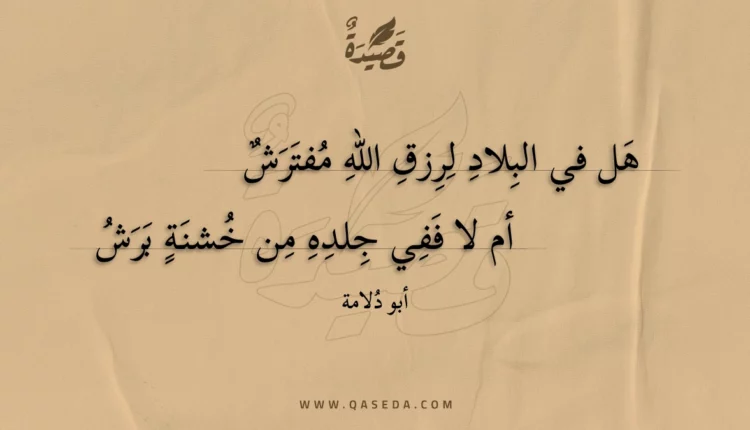 قَصِيْدَةٌ
هَل في البِلادِ لِرِزقِ اللَهِ مُفتَرَشٌ
أم لا فَفِي جِلدِهِ مِن خُشنَةٍ بَرَشُ
أبو دُلامة
WWW.QASEDA.COM